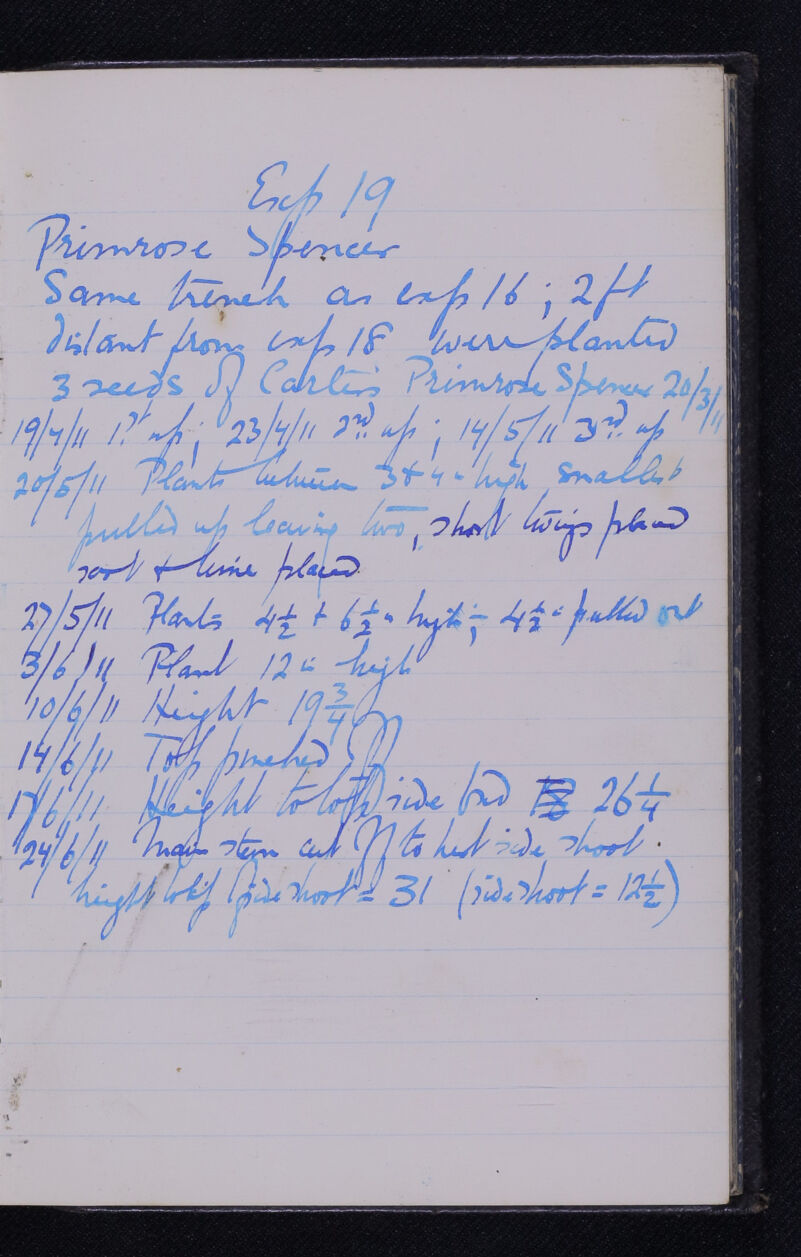 Exp 19
Primrose Spencer
Same trench as exp 16; 2 ft
distant from exp 18 were planted
3 seeds of Carter's Primrose Spencer 20/3/11
19/4/11 1st up; 23/4/11 2nd up; 14/5/11 3rd up
20/5/11 Plants between 3 & 4" high smallest
pulled up leaving two, short twigs placed
soot & lime placed
27/5/11 Plants 4½ & 6½" high; 4½" pulled out
3/6/11 Plant 12" high
10/6/11 Height 19¾
14/6/11 Top pinched off
17/6/11 Height to top of side bud 26¼
24/6/11 Main stem cut off to best side shoot.
height to tip of side shoot = 31 (side shoot = 12½)